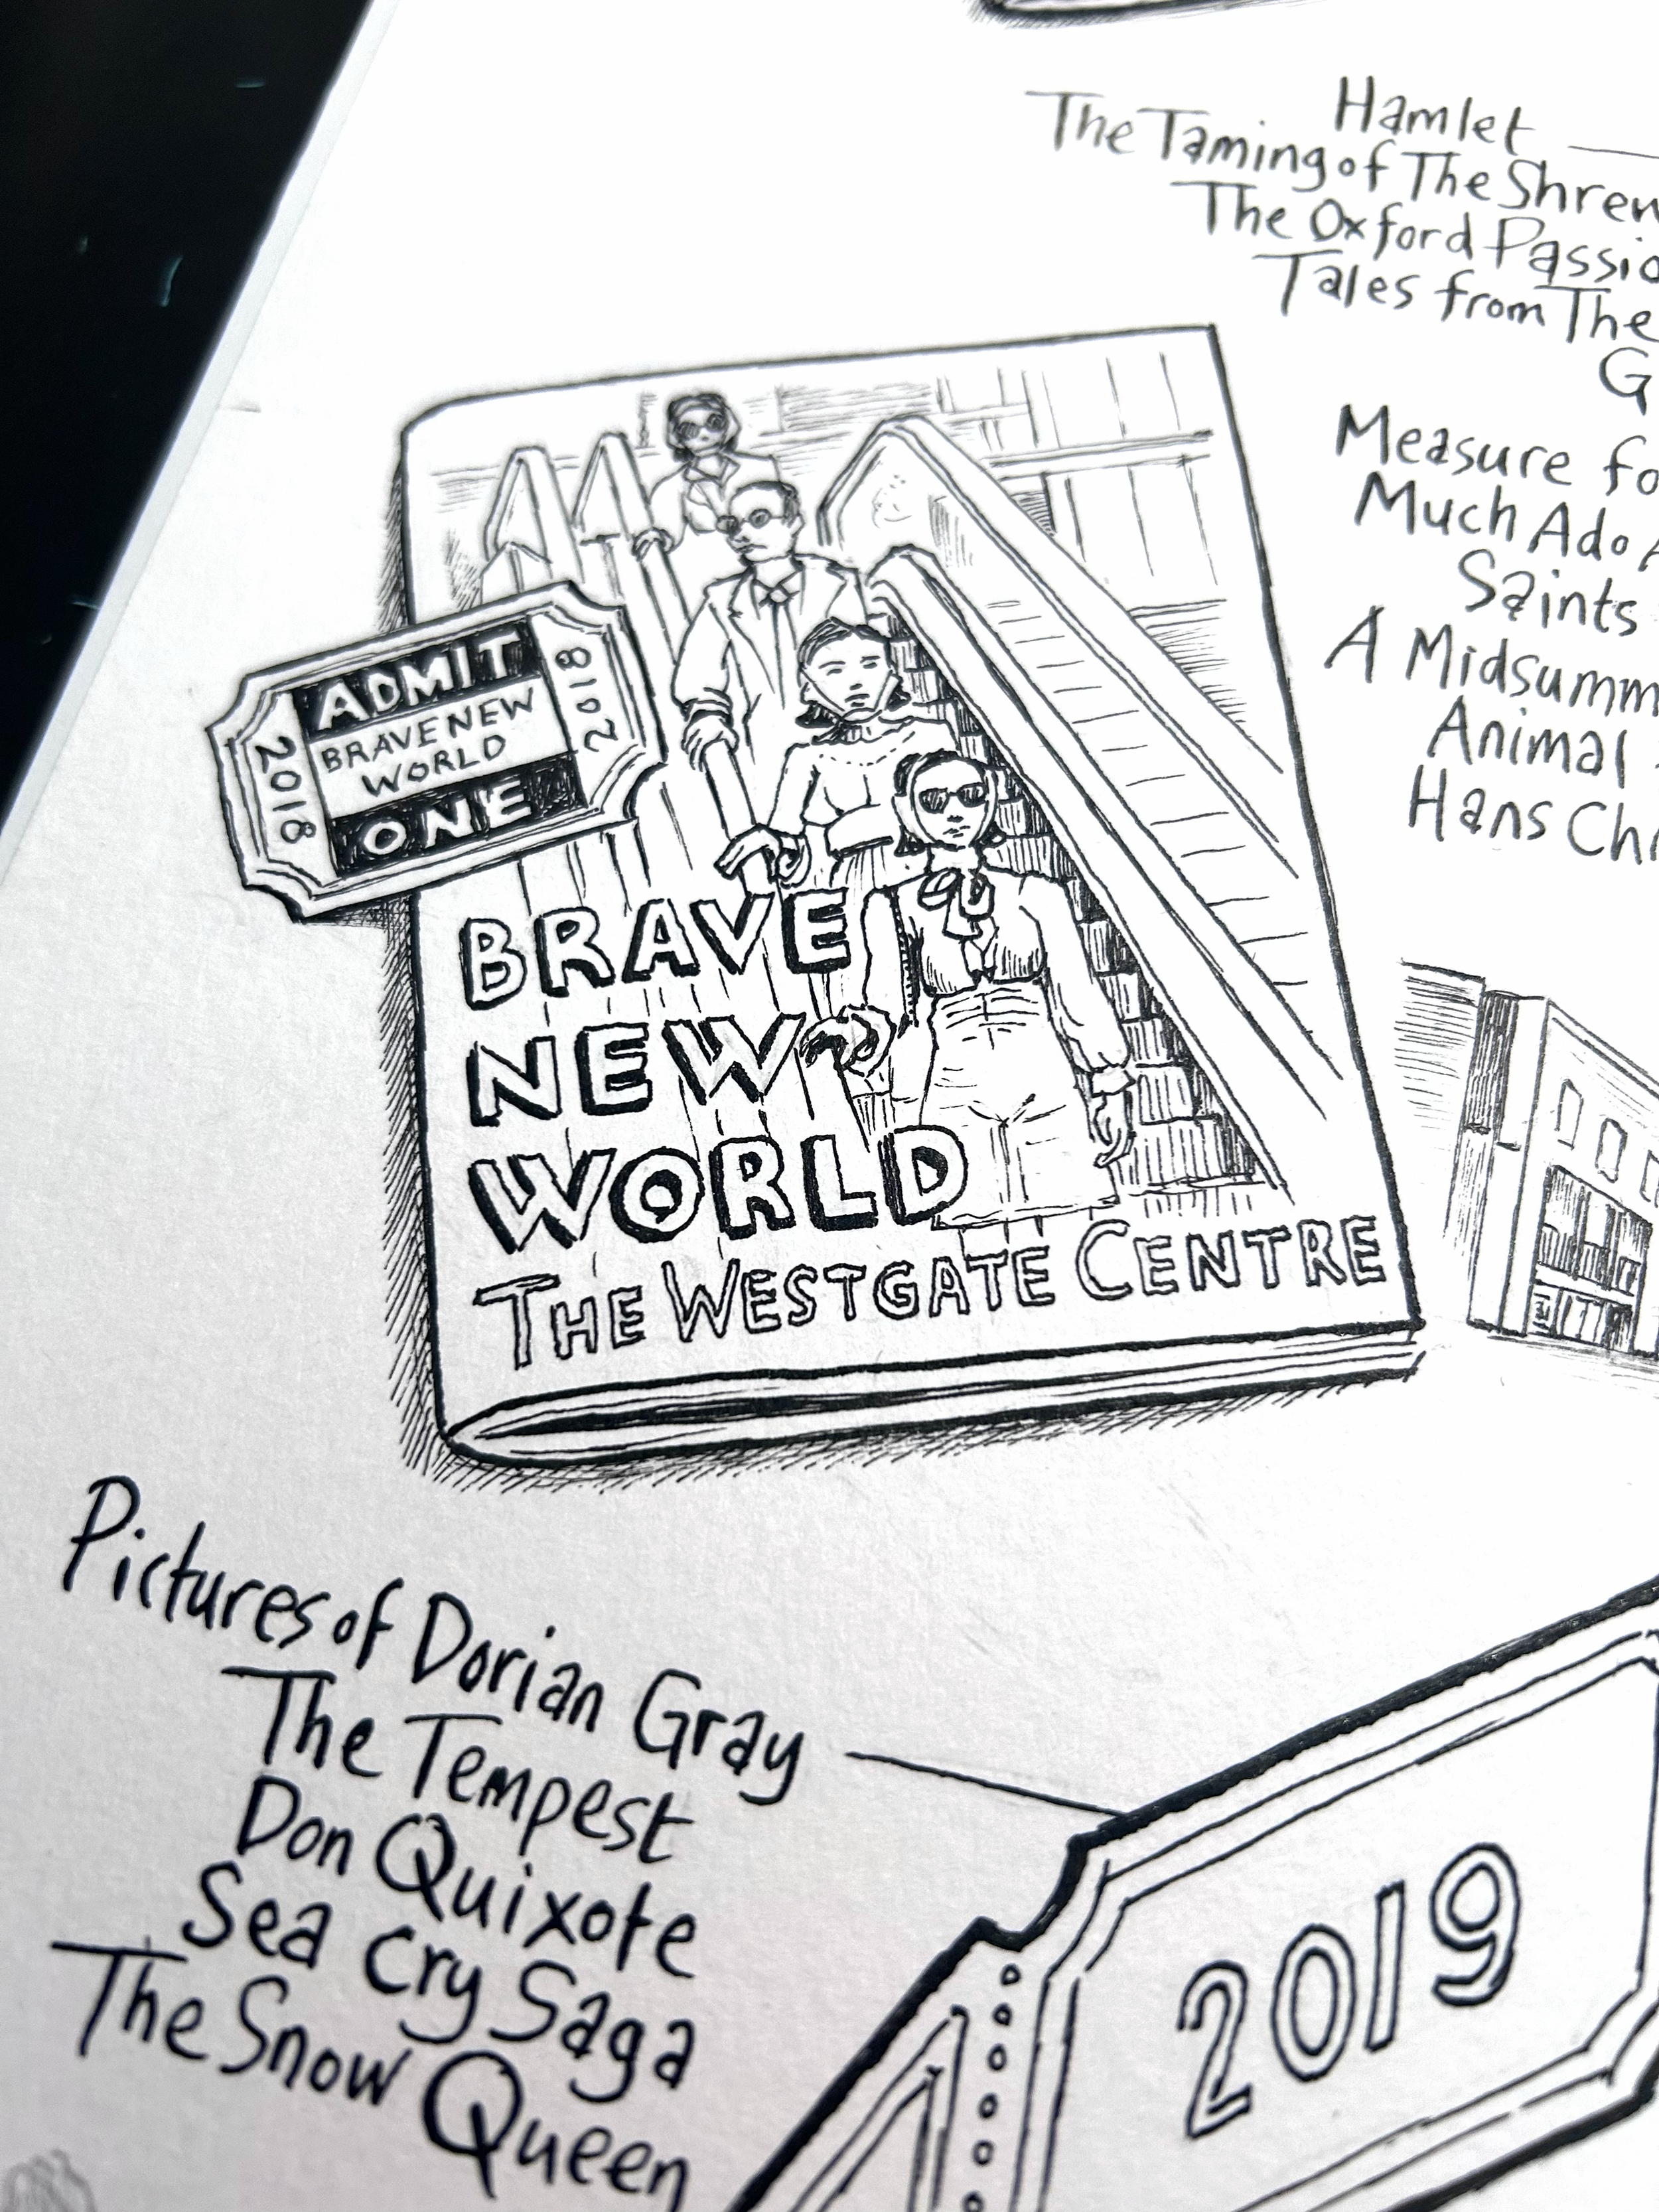 Hamlet
The Taming of The Shrew
The Oxford
Tales from The
Measure
Much Ado
Saints
A
Animal
Hans
ADMIT
BRAVE NEW
WORLD
ONE
2018
2018
BRAVE
NEW
WORLD
THE WESTGATE CENTRE
Pictures of Dorian Gray
The Tempest
Don Quixote
Sea Cry Saga
The Snow Queen
2019